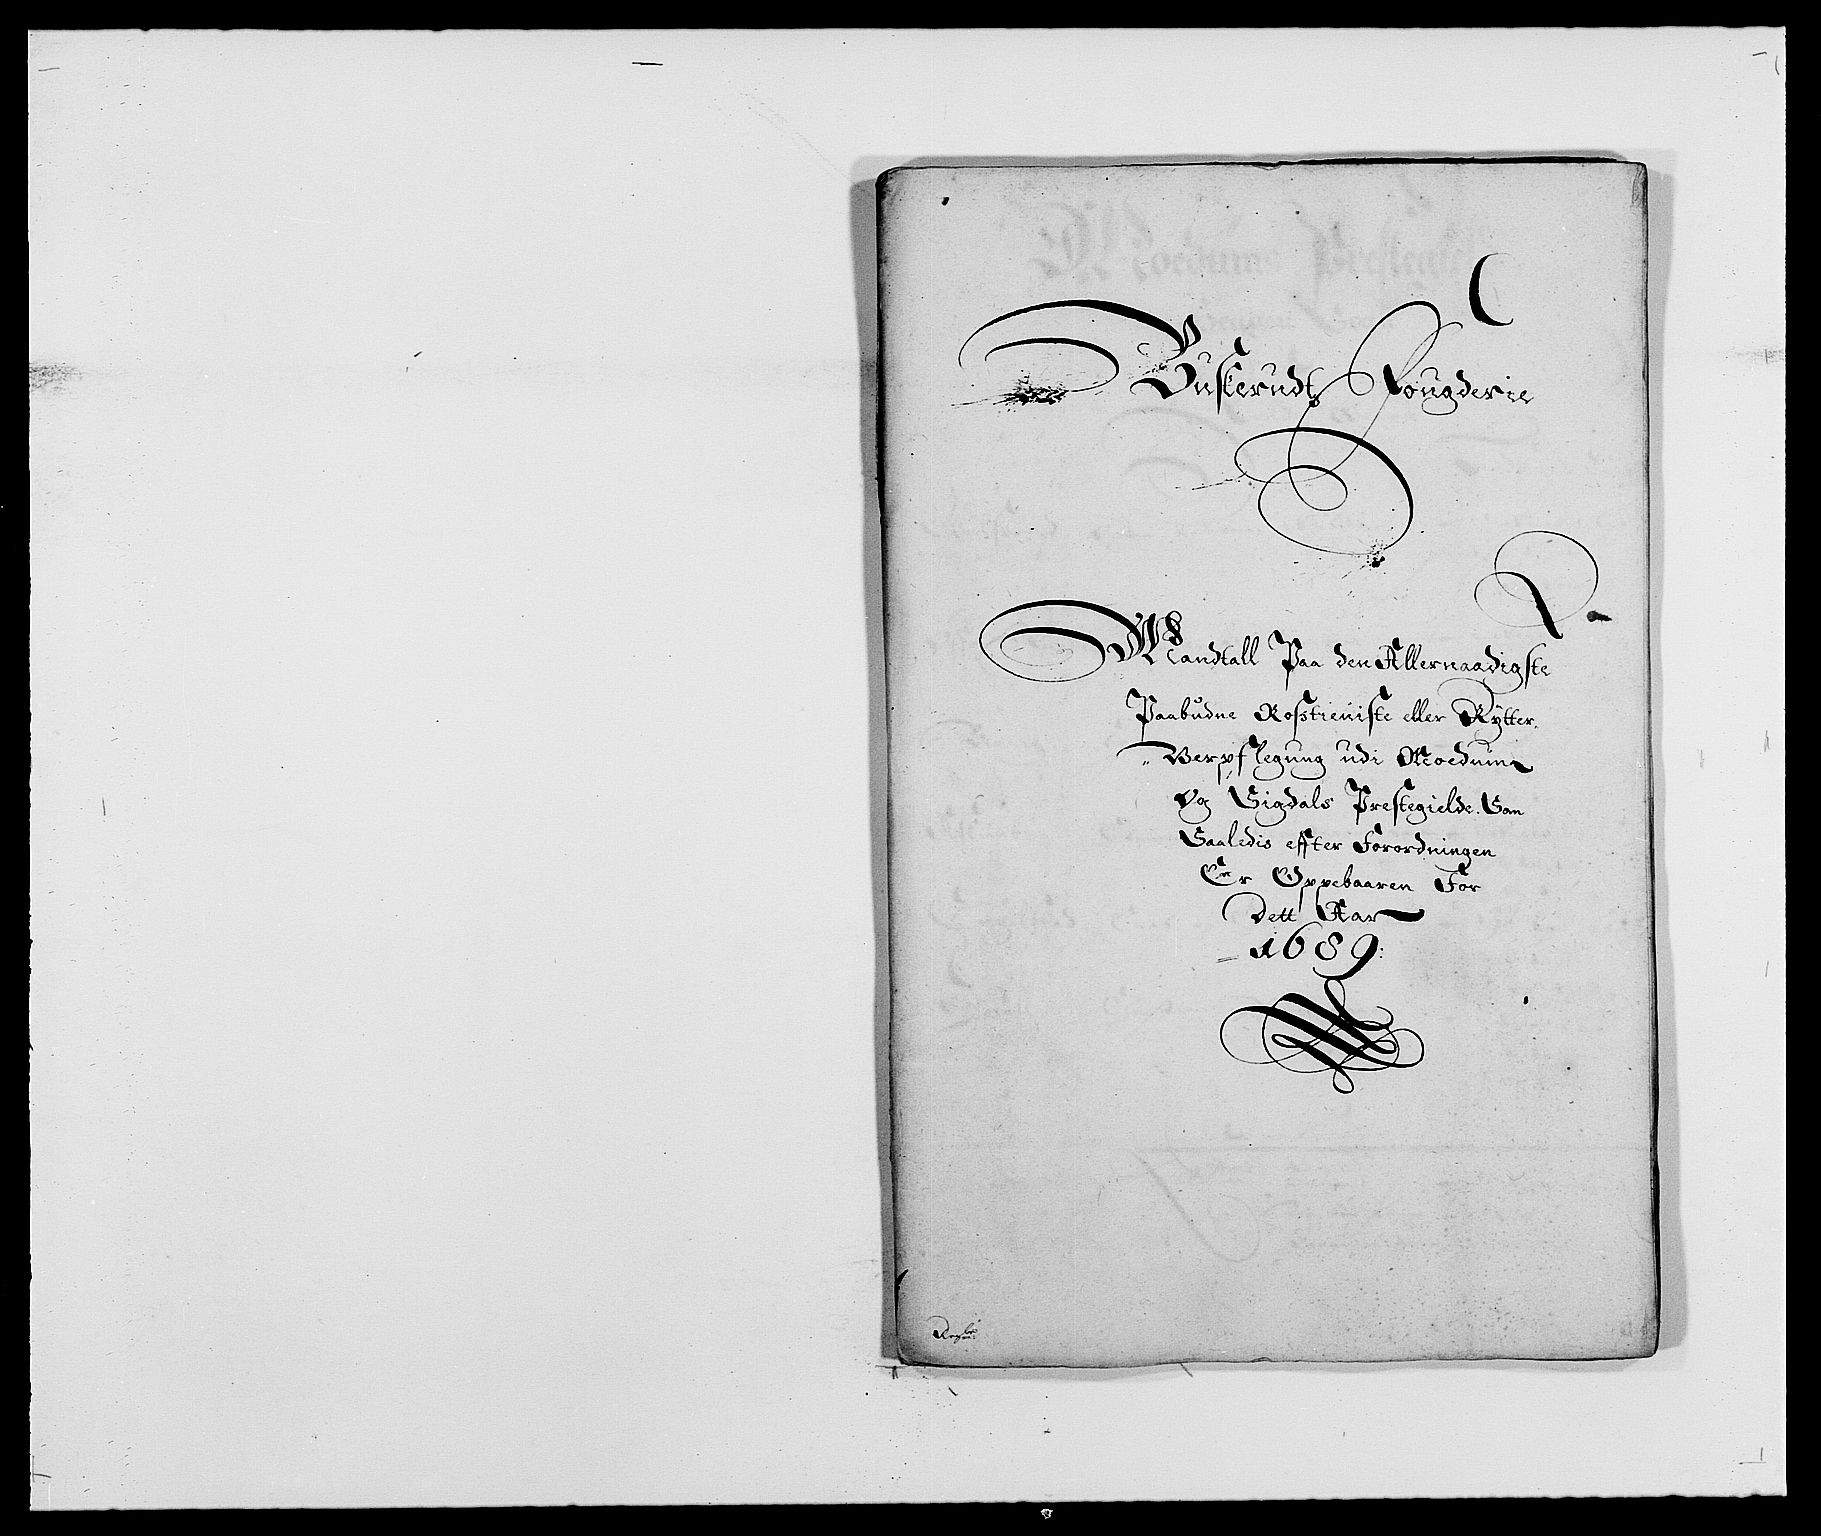 Buskerudt Fougderie
Mandtall Paa den Allernaadigste
Paabudne Rosstieniste eller Rytter,
Verpflegung udi Moedums
Og Sigdals Prestegielde. Som
Saaledis effter Forordningen
Er Oppebaaren For
Dett Aar
1689: